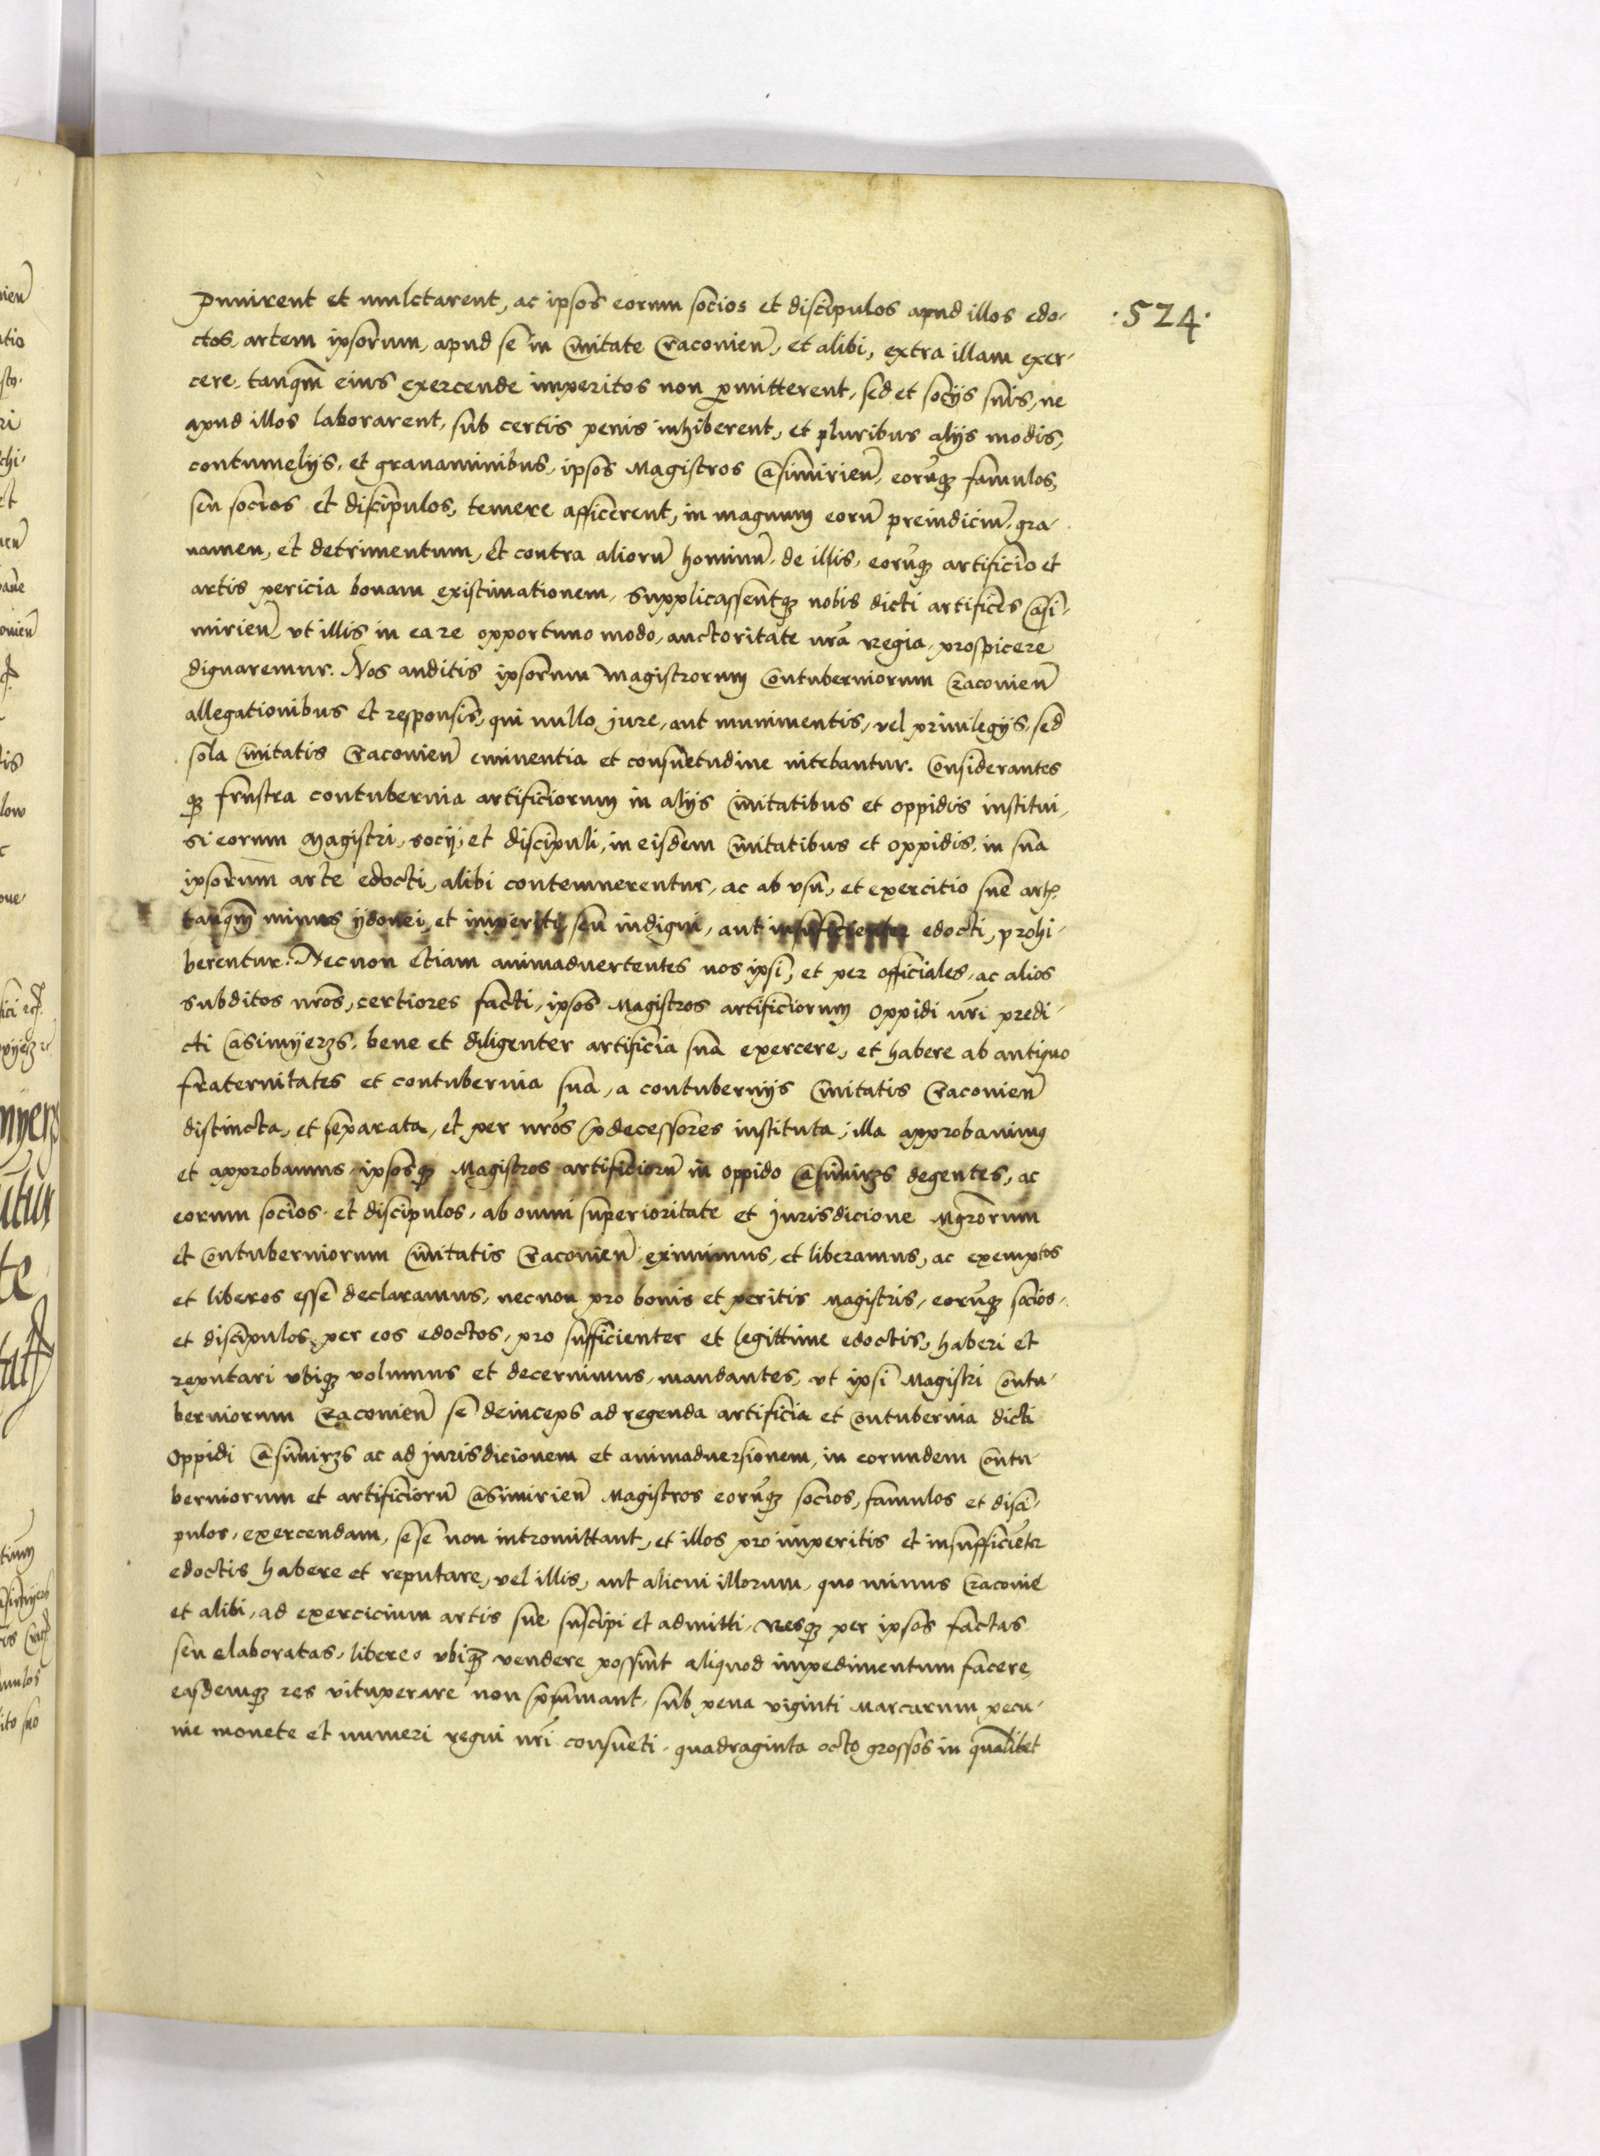 ·524·
punirent et mulctarent, ac ipsos eorum socios et discipulos apud illos edo-
ctos, artem ipsorum, apud se in Ciuitate Cracouien̄, et alibi, extra illam exer-
cere, tanq̃m eius exercende imperitos non ꝑmitterent, sed et socijs suis, ne
apud illos laborarent, sub certis penis inhiberent, et pluribus alijs modis,
contumelijs, et grauaminibus, ipsos Magistros Casimirien̄, eorũqꝫ famulos,
seu socios et discipulos, temere afficerent, in magnum eorũ preiudiciũ, gra-
uamen, et detrimentum, et contra aliorũ hominũ, de illis, eorũqꝫ artificio et
artis pericia bonam existimationem, Supplicassentqꝫ nobis dicti artifices Casi-
mirien̄ vt illis in ea re opportuno modo, auctoritate nr̃a Regia, prospicere
dignaremur. Nos auditis ipsorum Magistrorum Contuberniorum Cracouien̄
allegationibus et responsis, qui nullo jure, aut munimentis, vel priuilegijs, sed
sola Ciuitatis Cracouien̄ eminentia et consuetudine nitebantur. Considerantes
qꝫ frustra contubernia artificiorum in alijs Ciuitatibus et oppidis institui,
si eorum Magistri, socij, et discipuli, in eisdem Ciuitatibus et oppidis, in sua
ipsorum arte edocti, alibi contemnerentur, ac ab vsu, et exercitio sue artꝭ
tanq̃m minus ijdonei, et imperiti, seu indigni, aut insufficienter edocti, prohi-
berentur. Necnon etiam animaduertentes nos ipsi, et per officiales, ac alios
subditos nr̃os, certiores facti, ipsos Magistros artificiorum oppidi nr̃i predi-
cti Casimyerzs, bene et diligenter artificia sua exercere, et habere ab antiquo
fraternitates et contubernia sua, a contubernijs Ciuitatis Cracouien̄
distincta, et separata, et per nr̃os p̃decessores instituta, illa approbauimus
et approbamus, ipsosqꝫ Magistros artificiorũ in oppido Casimirzs degentes, ac
eorum socios et discipulos, ab omni superioritate et jurisdicione Mgr̃orum
et Contuberniorum Ciuitatis Cracouien̄ eximimus, et liberamus, ac exemptos
et liberos esse declaramus, necnon pro bonis et peritis Magistris, eorũqꝫ socios,
et discipulos, per eos edoctos, pro sufficienter et legittime edoctis, haberi et
reputari vbiqꝫ volumus et decernimus, mandantes, vt ipsi Magistri Contu-
berniorum Cracouien̄ se deinceps ad regenda artificia et Contubernia dicti
Oppidi Casimirzs ac ad jurisdicionem et animaduersionem, in eorundem Contu-
berniorum et artificiorũ Casimirien̄ Magistros eorũqꝫ socios, famulos et disci-
pulos, exercendam, sese non intromittant, et illos pro imperitis et insufficieñtr
edoctis habere et reputare, vel illis, aut alicui illorum, quo minus Cracouie
et alibi, ad exercicium artis sue suscipi et admitti, Resqꝫ per ipsos factas
seu elaboratas, libere, vbiqꝫ vendere possint aliquod impedimentum facere,
easdemqꝫ res vituperare non p̃sumant, sub pena viginti Marcarum pecu-
nie monete et numeri regni nr̃i consueti, quadraginta octo grossos in qualibet